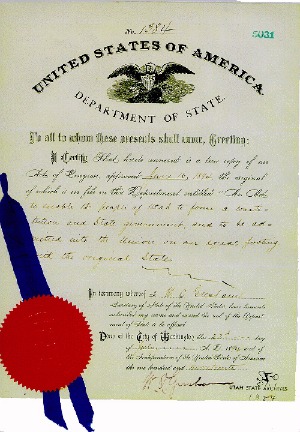 No. 1384
5031
UNITED STATES OF AMERICA,
DEPARTMENT OF STATE.
To all to whom these presents shall come, Greeting:
I Certify That hereto annexed is a true copy of an
Act of Congress, approved July 16, 1894, the original
of which is on file in this Department entitled "An Act
to enable the people of Utah to form a consti-
tution and State government, and to be ad-
mitted into the Union on an equal footing
with the original States.
In testimony whereof I, W. Q. Gresham
Secretary of State of the United States, have hereunto
subscribed my name and caused the seal of the Depart-
ment of State to be affixed.
Done at the City of Washington, this day
of A.D. 1894 and of
the Independence of the United States of America
the one hundred and
W. Q. Gresham
UTAH STATE ARCHIVES